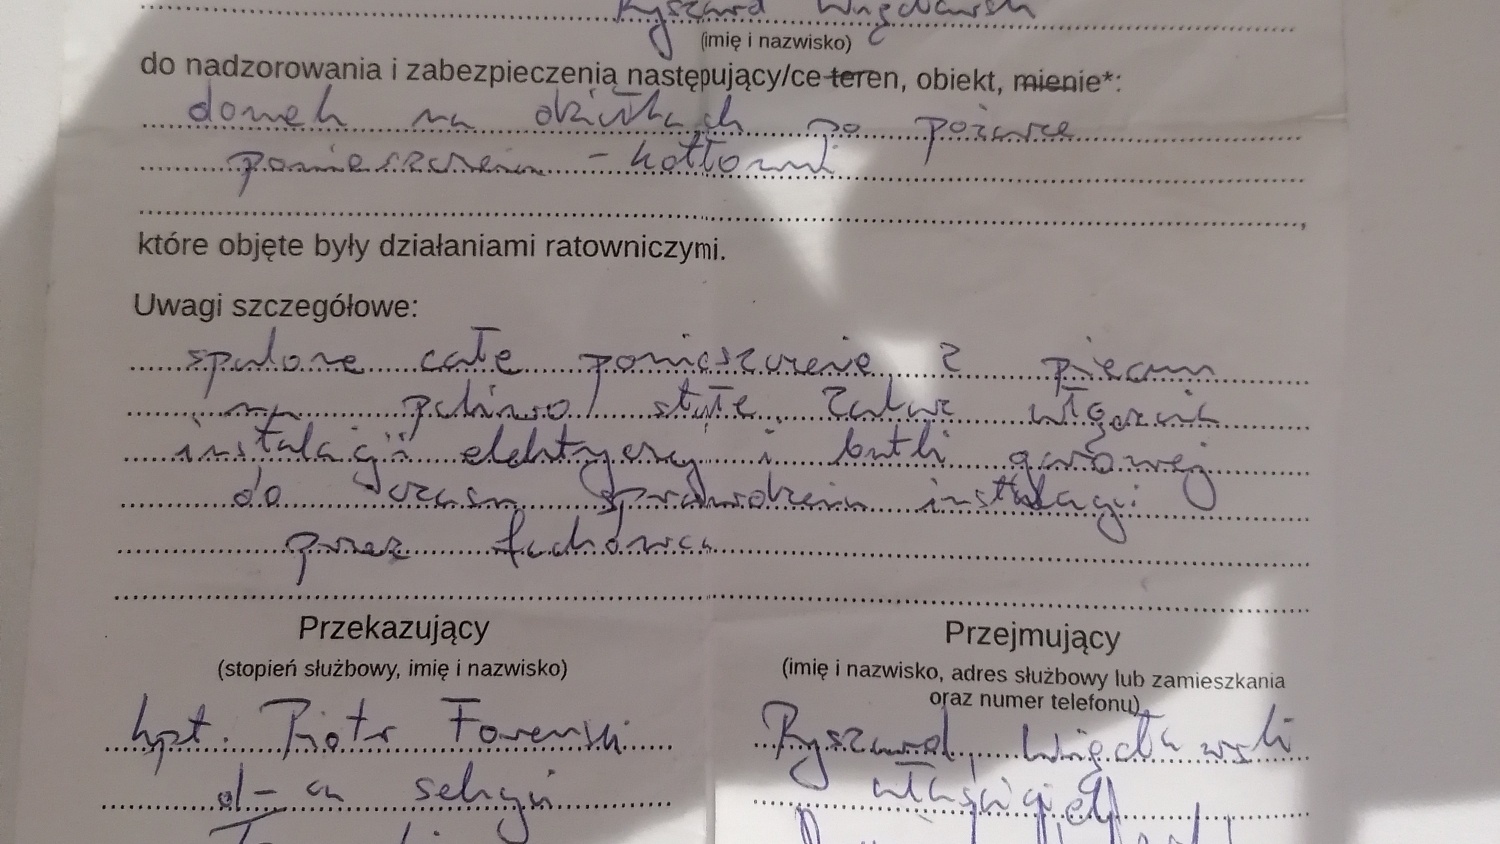 Ryszard
(imię i nazwisko)
do nadzorowania i zabezpieczenia następujący/ce teren, obiekt, mienie*:
domek na działkach po pożarze
pomieszczenia - kotłowni
które objęte były działaniami ratowniczymi.
Uwagi szczegółowe:
spalone całe pomieszczenie z piecem
na paliwo stałe. Zakaz włączania
instalacji elektryczny i butli gazowej
do czasu sprawdzenia instalacji
przez fachowca
Przekazujący
(stopień służbowy, imię i nazwisko)
kpt. Piotr
d-ca sekcji
Przejmujący
(imię i nazwisko, adres służbowy lub zamieszkania
oraz numer telefonu)
Ryszard
właściciel